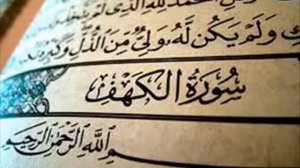 الحمد لله الذي لم يتخذ
ك ولم يكن له ولي من الذل وكبره
سورة الكهف
بسم الله الرحمن الرحيم